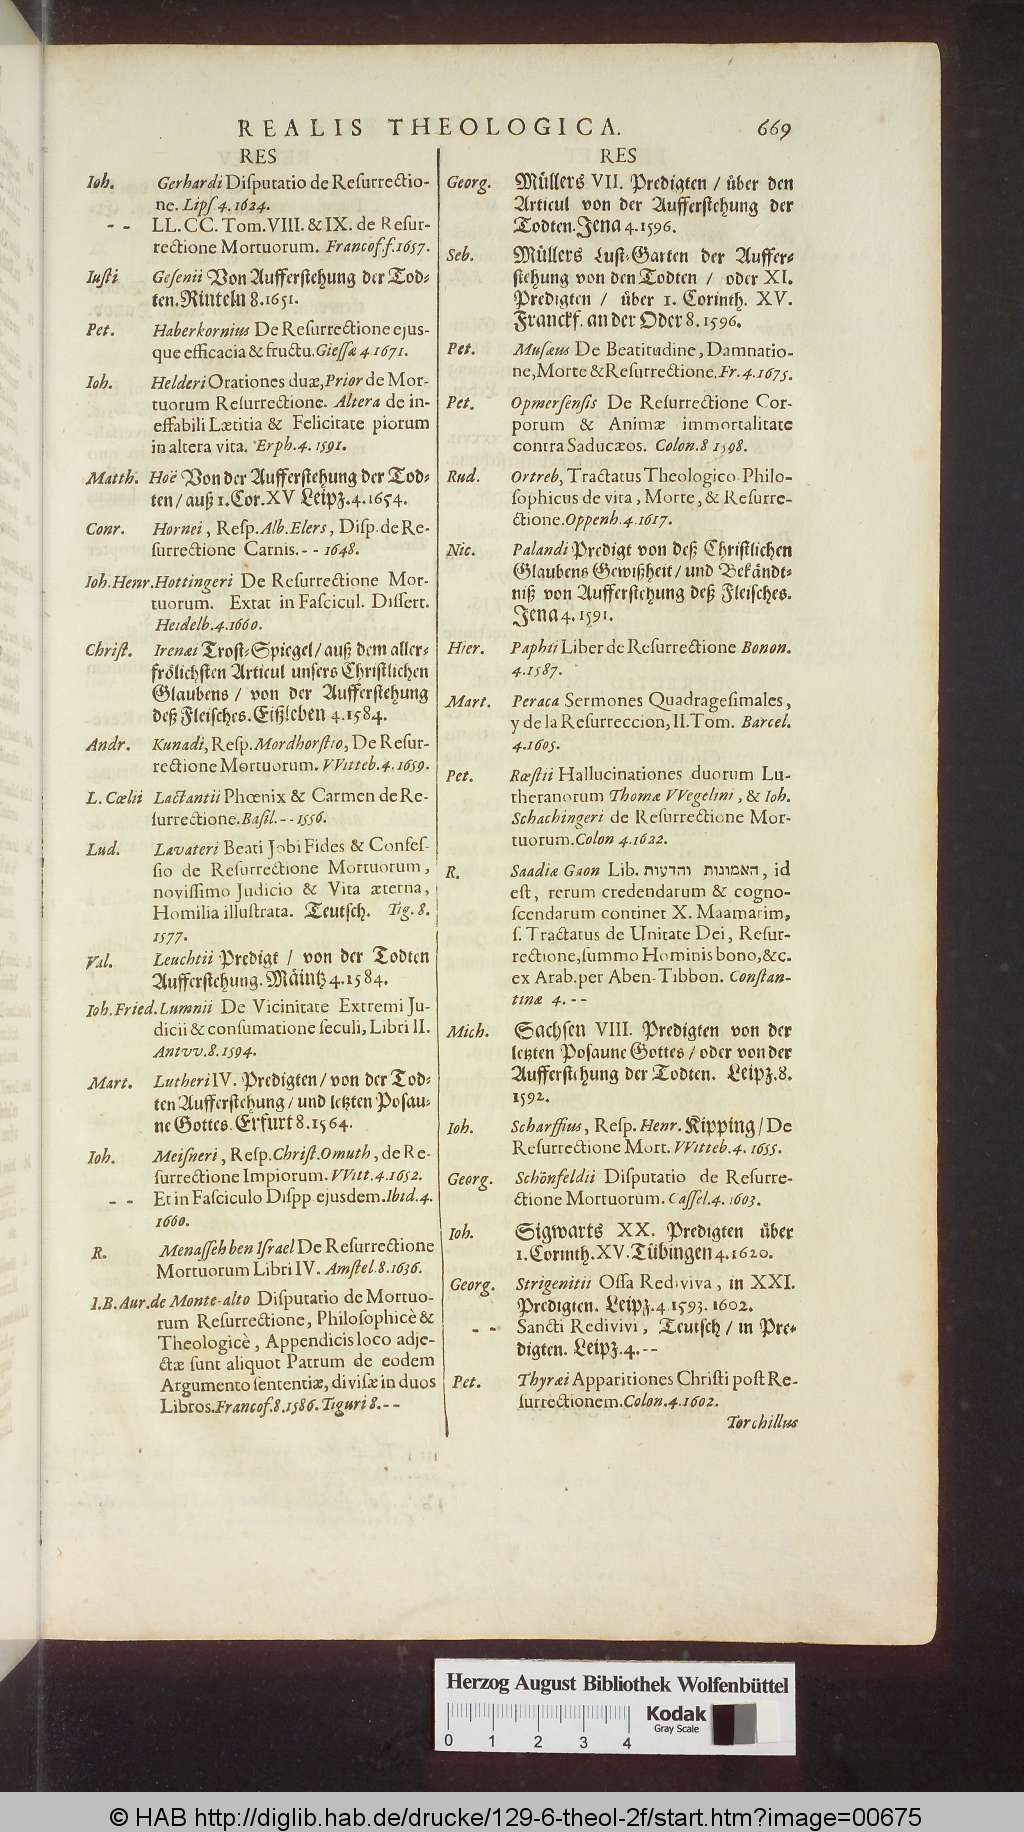 REALIS THEOLOGICA. 669
RES
Ioh. Gerhardi Disputatio de Resurrectio-
ne. Lips 4. 1624.
- - LL. CC. Tom. VIII. & IX. de Resur-
rectione Mortuorum. Francof. f. 1657.
Iusti Gesenii Von Aufferstehung der Tod-
ten. Rinteln 8. 1651.
Pet. Haberkornius De Resurrectione ejus-
que efficacia & fructu. Giessæ 4 1671.
Ioh. Helderi Orationes duæ, Prior de Mor-
tuorum Resurrectione. Altera de in-
effabili Lætitia & Felicitate piorum
in altera vita. Erph. 4. 1591.
Matth. Hoë Von der Aufferstehung der Tod-
ten / auß 1. Cor. XV Leipz. 4. 1654.
Conr. Hornei, Resp. Alb. Elers, Disp. de Re-
surrectione Carnis. - - 1648.
Ioh. Henr. Hottingeri De Resurrectione Mor-
tuorum. Extat in Fascicul. Dissert.
Heidelb. 4. 1660.
Christ. Irenæi Trost-Spiegel / auß dem aller-
frölichsten Articul unsers Christlichen
Glaubens / von der Aufferstehung
deß Fleisches. Eißleben 4. 1584.
Andr. Kunadi, Resp. Mordhorstio, De Resur-
rectione Mortuorum. VVitteb. 4. 1659.
L. Cœlii Lactantii Phœnix & Carmen de Re-
surrectione. Basil. - - 1556.
Lud. Lavateri Beati Jobi Fides & Confes-
sio de Resurrectione Mortuorum,
novissimo Judicio & Vita æterna,
Homilia illustrata. Teutsch. Tig. 8.
1577.
Val. Leuchtii Predigt / von der Todten
Aufferstehung. Mäintz 4. 1584.
Ioh. Fried. Lumnii De Vicinitate Extremi Ju-
dicii & consumatione seculi, Libri II.
Antvv. 8. 1594.
Mart. Lutheri IV. Predigten / von der Tod-
ten Aufferstehung / und letzten Posau-
ne Gottes. Erfurt 8. 1564.
Ioh. Meisneri, Resp. Christ. Omuth, de Re-
surrectione Impiorum. VVitt. 4. 1652.
- - Et in Fasciculo Dispp ejusdem. Ibid. 4.
1660.
R. Menasseh ben Israel De Resurrectione
Mortuorum Libri IV. Amstel. 8. 1636.
I. B. Aur. de Monte-alto Disputatio de Mortuo-
rum Resurrectione, Philosophicè &
Theologicè, Appendicis loco adje-
ctæ sunt aliquot Patrum de eodem
Argumento sententiæ, divisæ in duos
Libros. Francof. 8. 1586. Tiguri 8. - -
RES
Georg. Müllers VII. Predigten / über den
Articul von der Aufferstehung der
Todten. Jena 4. 1596.
Seb. Müllers Lust-Garten der Auffer-
stehung von den Todten / oder XI.
Predigten / über 1. Corinth. XV.
Franckf. an der Oder 8. 1596.
Pet. Musæus De Beatitudine, Damnatio-
ne, Morte & Resurrectione. Fr. 4. 1675.
Pet. Opmersensis De Resurrectione Cor-
porum & Animæ immortalitate
contra Saducæos. Colon. 8 1598.
Rud. Ortreb, Tractatus Theologico Philo-
sophicus de vita, Morte, & Resurre-
ctione. Oppenh. 4. 1617.
Nic. Palandi Predigt von deß Christlichen
Glaubens Gewißheit / und Bekändt-
niß von Aufferstehung deß Fleisches.
Jena 4. 1591.
Hier. Paphii Liber de Resurrectione Bonon.
4. 1587.
Mart. Peraca Sermones Quadragesimales,
y de la Resurreccion, II. Tom. Barcel.
4. 1605.
Pet. Rœstii Hallucinationes duorum Lu-
theranorum Thomæ VVegelini, & Ioh.
Schachingeri de Resurrectione Mor-
tuorum. Colon 4. 1622.
R. Saadiæ Gaon Lib. האמונות והדעות, id
est, rerum credendarum & cogno-
scendarum continet X. Maamarim,
s. Tractatus de Unitate Dei, Resur-
rectione, summo Hominis bono, &c.
ex Arab. per Aben-Tibbon. Constan-
tinæ 4. - -
Mich. Sachsen VIII. Predigten von der
letzten Posaune Gottes / oder von der
Aufferstehung der Todten. Leipz. 8.
1592.
Ioh. Scharffius, Resp. Henr. Kipping / De
Resurrectione Mort. VVitteb. 4. 1655.
Georg. Schönfeldii Disputatio de Resurre-
ctione Mortuorum. Cassel. 4. 1603.
Ioh. Sigwarts XX. Predigten über
1. Corinth. XV. Tübingen 4. 1620.
Georg. Strigenitii Ossa Rediviva, in XXI.
Predigten. Leipz. 4 1593. 1602.
- - Sancti Redivivi, Teutsch / in Pre-
digten. Leipz. 4. - -
Pet. Thyræi Apparitiones Christi post Re-
surrectionem. Colon. 4. 1602.
Torchillus
Herzog August Bibliothek Wolfenbüttel
0 1 2 3 4
Kodak
Gray Scale
© HAB http://diglib.hab.de/drucke/129-6-theol-2f/start.htm?image=00675